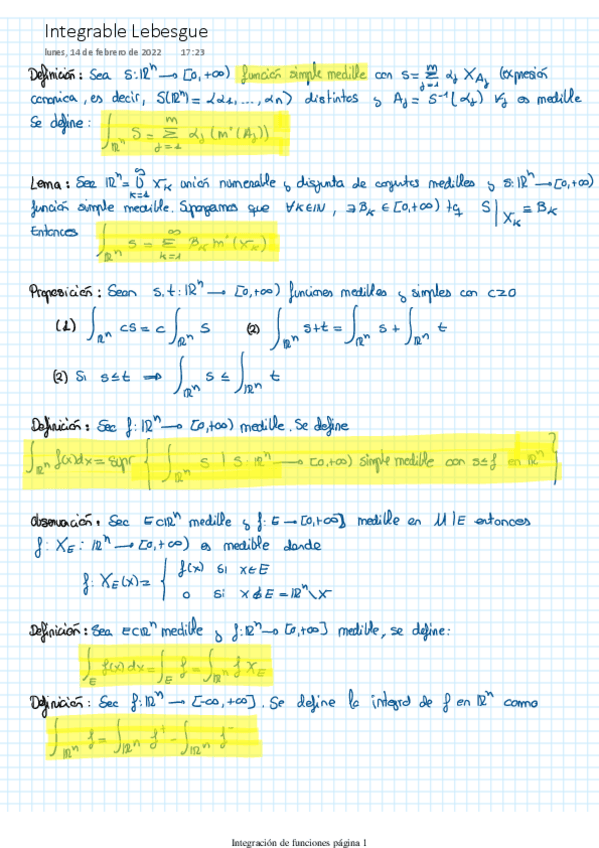 Integrable Lebesgue
lunes, 14 de febrero de 2022 17:23
Definición: Sea s: ℝⁿ → [0,+∞) función simple medible con s = Σ_{j=1}^{m} αⱼ χ_{Aⱼ} (expresión
canonica, es decir, S(ℝⁿ) = {α₁, ..., αn} distintos y Aⱼ = s⁻¹(αⱼ) ∀j es medible
Se define: ∫_{ℝⁿ} s = Σ_{j=1}^{m} αⱼ (m*(Aⱼ))
Lema: Sea ℝⁿ = ∪_{k=1}^{∞} X_k unión numerable y disjunta de conjuntos medibles y s: ℝⁿ → [0,+∞)
función simple medible. Supongamos que ∀k∈ℕ, ∃B_k ∈ [0,+∞) tq s|_{X_k} = B_k
Entonces ∫_{ℝⁿ} s = Σ_{k=1}^{∞} B_k m*(X_k)
Proposición: Sean s,t: ℝⁿ → [0,+∞) funciones medibles y simples con c≥0
(1) ∫_{ℝⁿ} cs = c ∫_{ℝⁿ} s (2) ∫_{ℝⁿ} s+t = ∫_{ℝⁿ} s + ∫_{ℝⁿ} t
(3) Si s≤t ⟹ ∫_{ℝⁿ} s ≤ ∫_{ℝⁿ} t
Definición: Sea f: ℝⁿ → [0,+∞) medible. Se define
∫_{ℝⁿ} f(x)dx = sup { ∫_{ℝⁿ} s | s: ℝⁿ → [0,+∞) simple medible con s≤f en ℝⁿ }
Observación: Sea E⊂ℝⁿ medible y f: E → [0,+∞] medible en M|E entonces
f·χ_E : ℝⁿ → [0,+∞) es medible donde
f·χ_E(x) = { f(x) si x∈E
0 si x∉E = ℝⁿ\X
Definición: Sea E⊂ℝⁿ medible y f: ℝⁿ → [0,+∞] medible, se define:
∫_E f(x)dx = ∫_E f = ∫_{ℝⁿ} f χ_E
Definición: Sea f: ℝⁿ → [-∞,+∞]. Se define la integral de f en ℝⁿ como
∫_{ℝⁿ} f = ∫_{ℝⁿ} f⁺ - ∫_{ℝⁿ} f⁻
Integración de funciones página 1